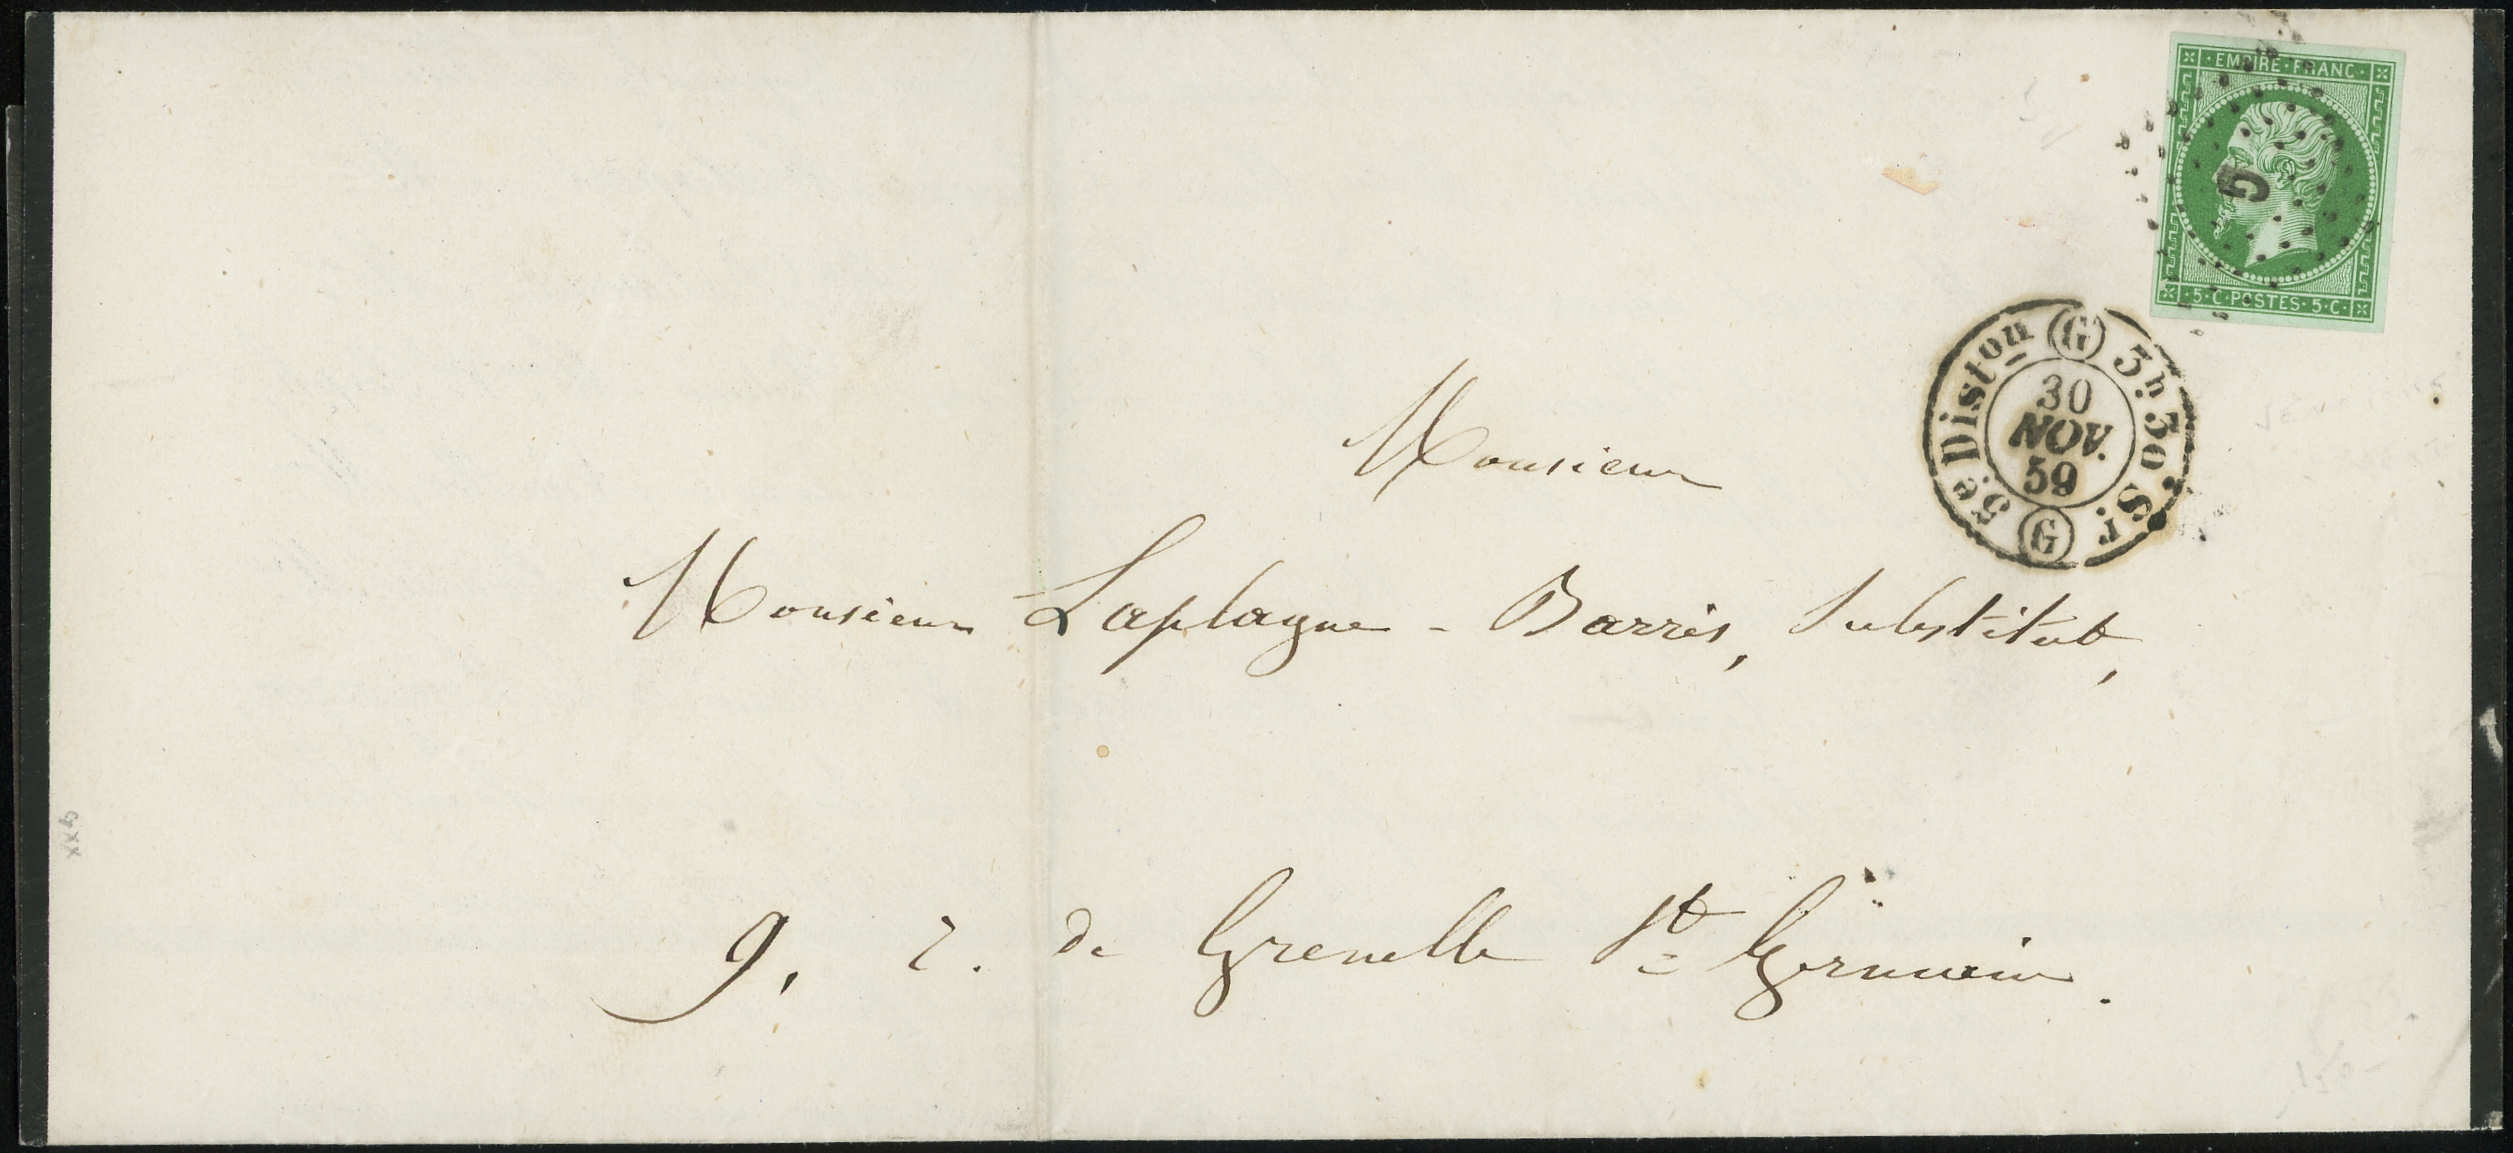 · EMPIRE · FRANC ·
G
· 5 · C · POSTES · 5 · C ·
5.e Dist on G 3h 30 Sr. G
30
NOV.
59
Monsieur
Monsieur Laplagne - Barris, Substitut,
9, r. de Grenelle St Germain.